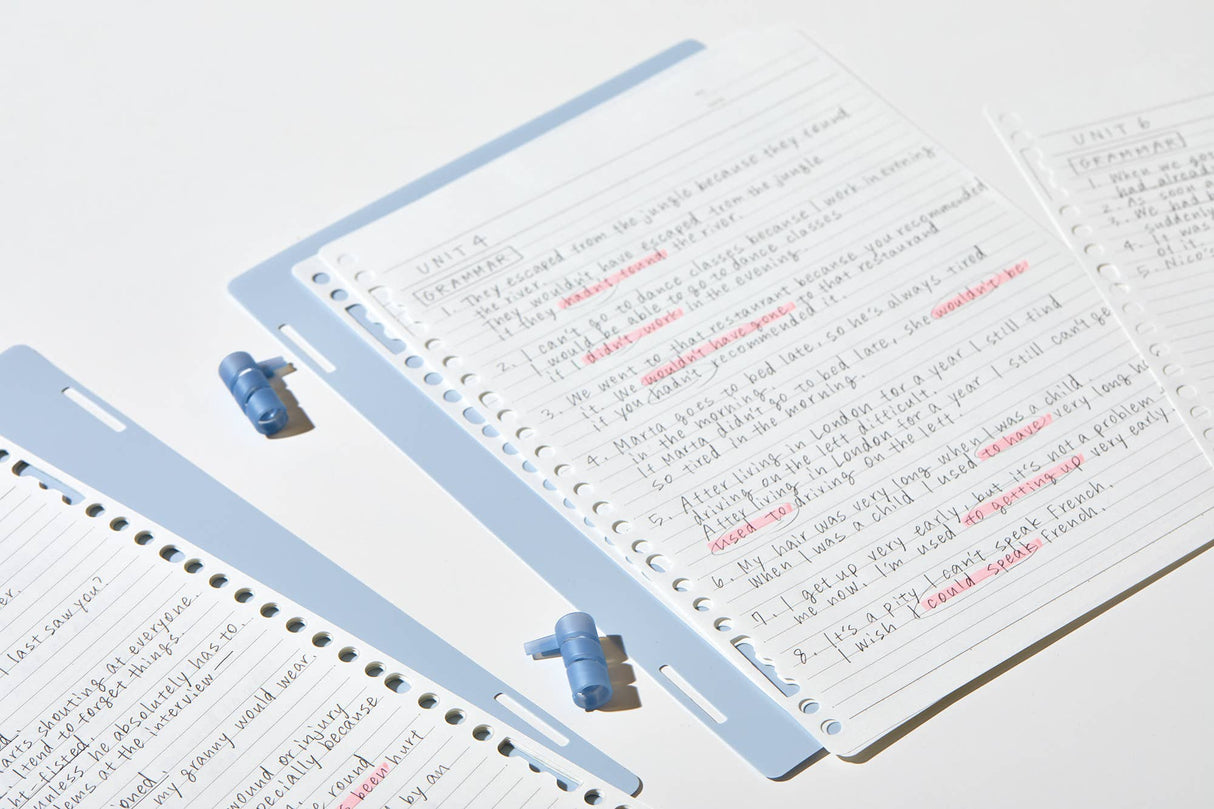 UNIT 4
GRAMMAR
1. They escaped from the jungle because they found
the river.
They wouldn't have escaped from the jungle
if they hadn't found the river.
2. I can't go to dance classes because I work in evening
I would be able to go to dance classes
if I didn't work in the evening.
3. We went to that restaurant because you recommended
it. We wouldn't have gone to that restaurand
if you hadn't recommended it.
4. Marta goes to bed late, so he's always tired
in the morning.
If Marta didn't go to bed late, she wouldn't be
so tired in the morning.
5. After living in London for a year I still find
driving on the left difficult.
After living in London for a year I still can't ge
used to driving on the left
6. My hair was very long when I was a child
When I was a child I used to have very long h
7. I get up very early, but it's not a problem
me now. I'm used to getting up very early.
8. It's a pity I can't speak French.
I wish I could speak French.
UNIT 6
GRAMMAR
1. When we go
had alread
2. As soon a
3. We had b
suddenly
4. It was
on it.
5. Nico's
er.
I last saw you?
d.
arts shouting at everyone.
. I tend to forget things.
ht-fisted,
unless he absolutely has to.
lems at the interview
ioned.
my granny would wear.
wound or injury
pecially because
e round
been hurt
d by an